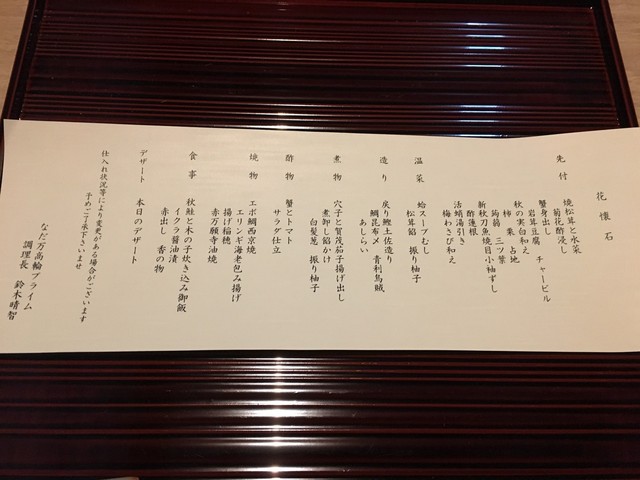 花懐石
先付
焼松茸と水菜
菊花酢浸し
蟹身出し チャービル
岩茸豆腐
秋の実白和え
柿 栗 占地
蒟蒻 三ツ葉
新秋刀魚焼目小袖ずし
酢蓮根
活蛸湯引き
梅わさび和え
温菜
蛤スープむし
松茸餡 振り柚子
造り
戻り鰹土佐造り
鯛昆布〆 青利烏賊
あしらい
煮物
穴子と賀茂茄子揚げ出し
煮卸し餡かけ
白髪葱 振り柚子
酢物
蟹とトマト
サラダ仕立
焼物
エボ鯛西京焼
エリンギ海老包み揚げ
揚げ稲穂
赤万願寺油焼
食事
秋鮭と木の子炊き込み御飯
イクラ醤油漬
赤出し 香の物
デザート
本日のデザート
仕入れ状況等により変更がある場合がございます
予めご了承下さいませ
なだ万高輪プライム
調理長 鈴木晴智